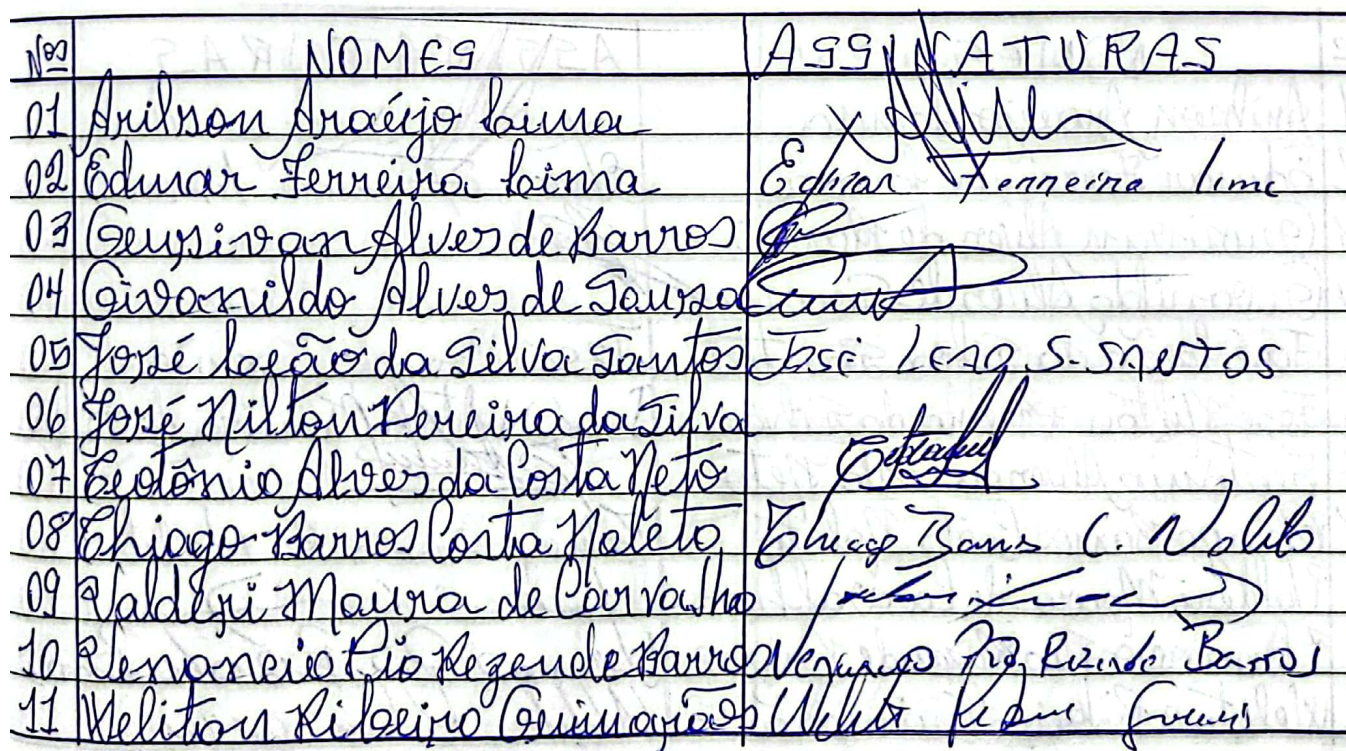 Nºs NOMES ASSINATURAS
01 Arilson Araújo Lima
02 Edmar Ferreira Lima Edmar Ferreira Lima
03 Geusivan Alves de Barros
04 Givanildo Alves de Sousa
05 José Leão da Silva Santos José Leão S. Santos
06 José Nilton Pereira da Silva
07 Teotônio Alves da Costa Neto
08 Thiago Barros Costa Noleto Thiago Barros C. Noleto
09 Valderi Moura de Carvalho
10 Venancio Pio Rezende Barros Venancio Pio Rezende Barros
11 Weliton Ribeiro Guimarães